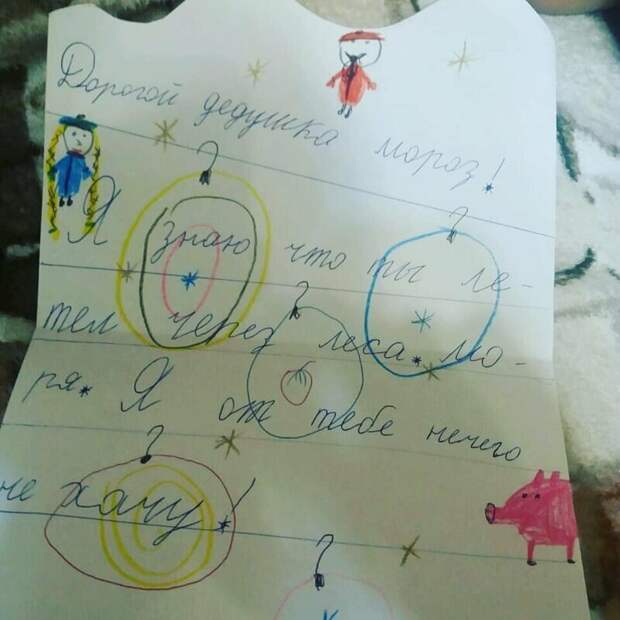 Дорогой дедушка мороз!
Я знаю что ты ле-
тел через леса. мо-
ря. Я от тебе нечего
не хачу!